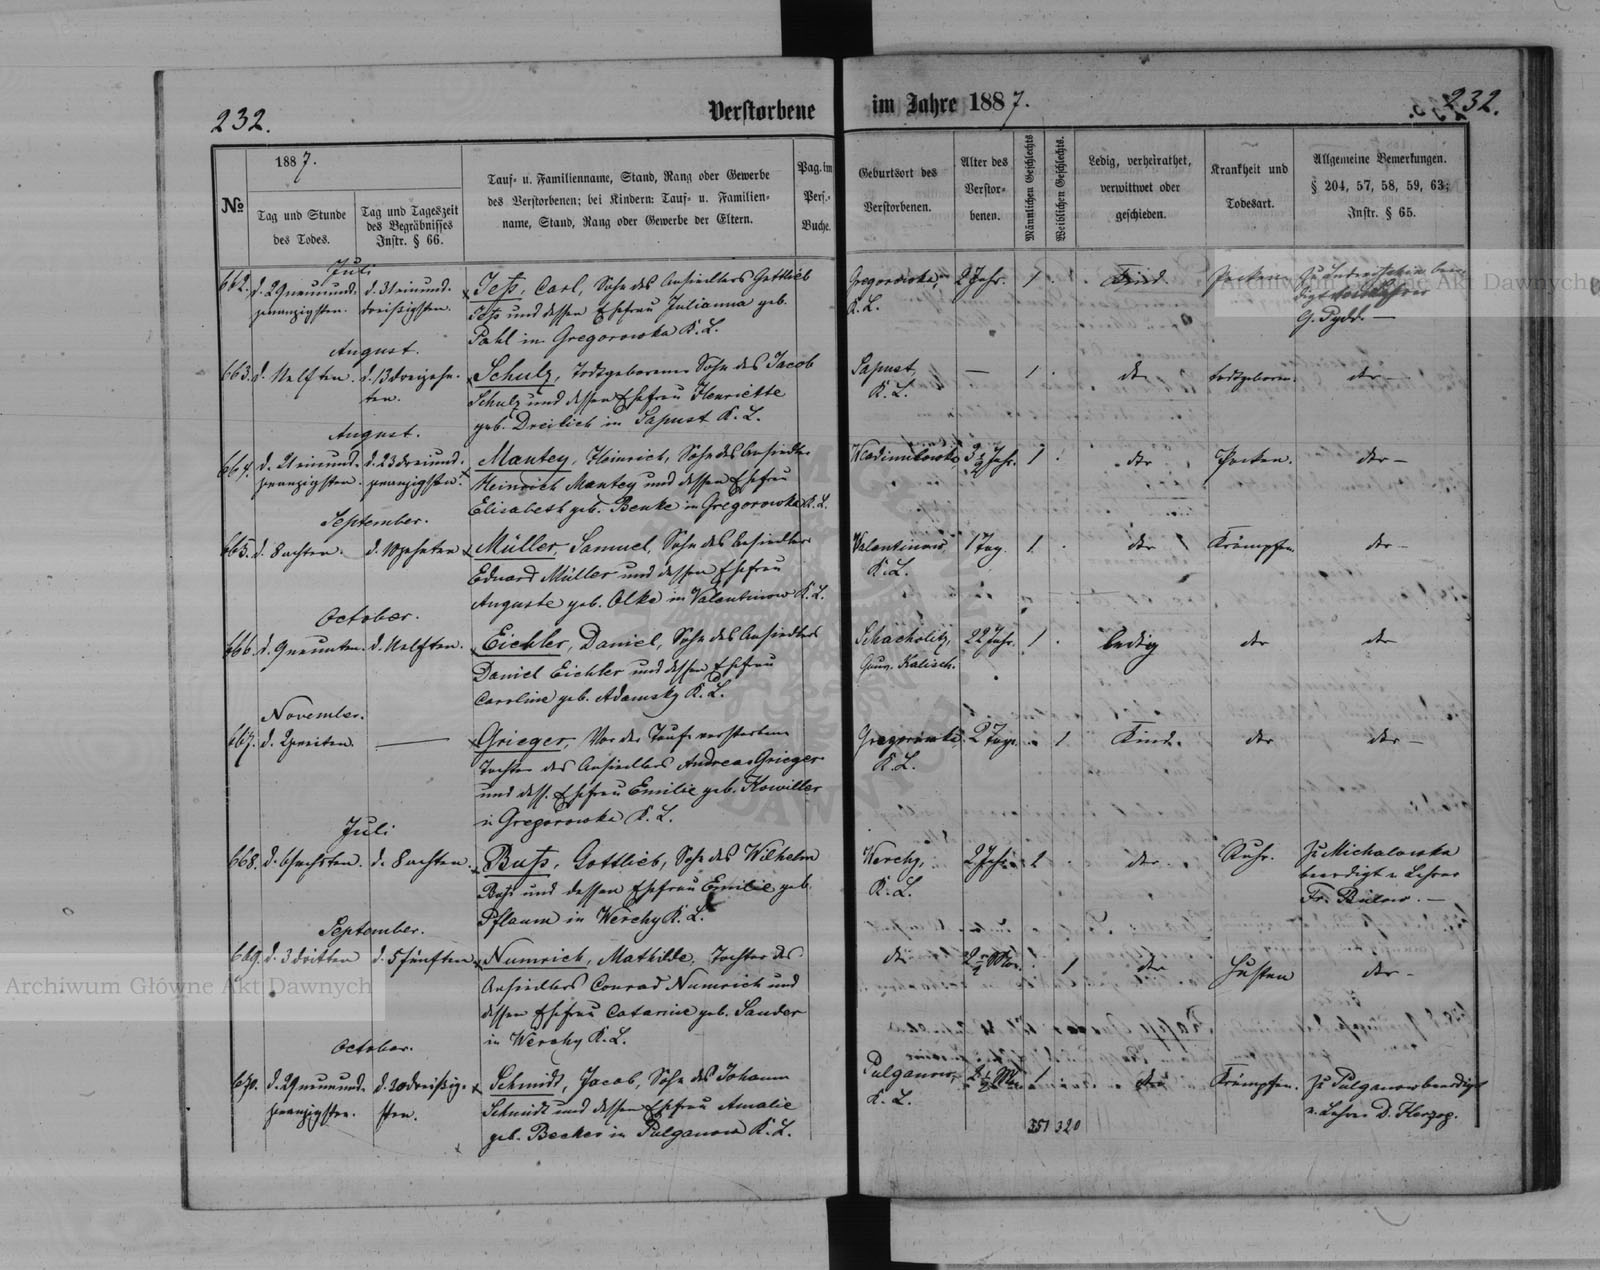 232.
Verstorbene
im Jahre 1887.
232.
№
1887.
Tag und Stunde
des Todes.
Tag und Tageszeit
des Begräbnisses
Instr. § 66.
Tauf- u. Familienname, Stand, Rang oder Gewerbe
des Verstorbenen; bei Kindern: Tauf- u. Familien-
name, Stand, Rang oder Gewerbe der Eltern.
Pag. im
Pers.-
Buche.
Geburtsort des
Verstorbenen.
Alter des
Verstor-
benen.
Männlichen Geschlechts
Weiblichen Geschlechts.
Ledig, verheirathet,
verwittwet oder
geschieden.
Krankheit und
Todesart.
Allgemeine Bemerkungen.
§ 204, 57, 58, 59, 63;
Instr. § 65.
Juli
662. d. 29 neunund- d. 31 einund- Jess, Carl, Sohn des Ansiedlers Gottlieb Gregorowka, 2 Jahr. 1 Kind Pocken
zwanzigsten. dreißigsten. Jess und dessen Ehefrau Julianna geb. K. L.
Pahl in Gregorowka K. L. G. Pydd. —
August.
663. d. 11 elften. d. 13 dreizehn- Schulz, Todtgeborener Sohn des Jacob Sapust — 1 do todtgeboren. do —
ten. Schulz und dessen Ehefrau Henriette K. L.
geb. Dreilich in Sapust K. L.
August.
664. d. 21 einund- d. 23 dreiund- Mantey, Heinrich, Sohn des Ansiedlers Wladimirowka 3 1/2 Jahr. 1 do Pocken. do —
zwanzigsten. zwanzigsten. Heinrich Mantey und dessen Ehefrau
Elisabeth geb. Benke in Gregorowka K. L.
September.
665. d. 8 achten. d. 10 zehnten Müller, Samuel, Sohn des Ansiedlers Valentinow 1 Tag. 1 do Krämpfen do —
Eduard Müller und dessen Ehefrau K. L.
Auguste geb. Olke in Valentinow K. L.
October.
666. d. 9 neunten. d. 11 elften. Eichler, Daniel, Sohn des Ansiedlers 22 Jahr. 1 ledig do do
Daniel Eichler und dessen Ehefrau Gouv. Kalisch.
Caroline geb. Adamsky K. L.
November.
667. d. 2 zweiten. — Grieger, Vor der Taufe verstorbene Gregorowka 2 Tage 1 Kind. do do —
Tochter des Ansiedlers Andreas Grieger K. L.
und dess. Ehefrau Emilie geb.
in Gregorowka K. L.
Juli
668. d. 6 sechsten. d. 8 achten. Buss, Gottlieb, Sohn des Wilhelm Werchy, 2 Jahr do Ruhr. Zu Michalowka
Buss und dessen Ehefrau Emilie geb. K. L. beerdigt v. Lehrer
Pflaum in Werchy K. L. Fr. Bülow. —
September.
669. d. 3 dritten d. 5 fünften Numrich, Mathilde, Tochter des do 1 do Husten do —
Ansiedlers Conrad Numrich und
dessen Ehefrau Catarine geb. Sander
in Werchy K. L.
October.
670. d. 29 neunund- d. 30 dreißig- Schmidt, Jacob, Sohn des Johann Pulganow, 1 do Krämpfen. Zu Pulganow beerdigt
zwanzigsten. sten. Schmidt und dessen Ehefrau Amalie K. L. v. Lehrer D. Herzog.
geb. Becker in Pulganow K. L.
351 320
Archiwum Główne Akt Dawnych
Archiwum Główne Akt Dawnych